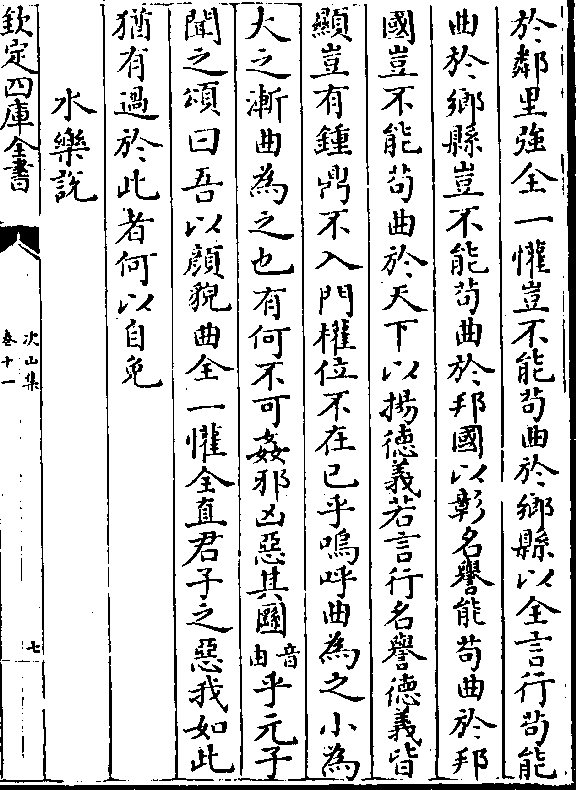 於鄰里強全一懽豈不能苟曲於鄉縣以全言行苟能
曲於鄉縣豈不能苟曲於邦國以彰名譽能苟曲於邦
國豈不能苟曲於天下以揚徳義若言行名譽徳義皆
顯豈有鍾鼎不入門權位不在已乎嗚呼曲為之小為
大之漸曲為之也有何不可姦邪凶惡其圝音由乎元子
聞之頌曰吾以顔貌曲全一懽全直君子之惡我如此
猶有過於此者何以自免
水樂說
欽定四庫全書
次山集
卷十一
七